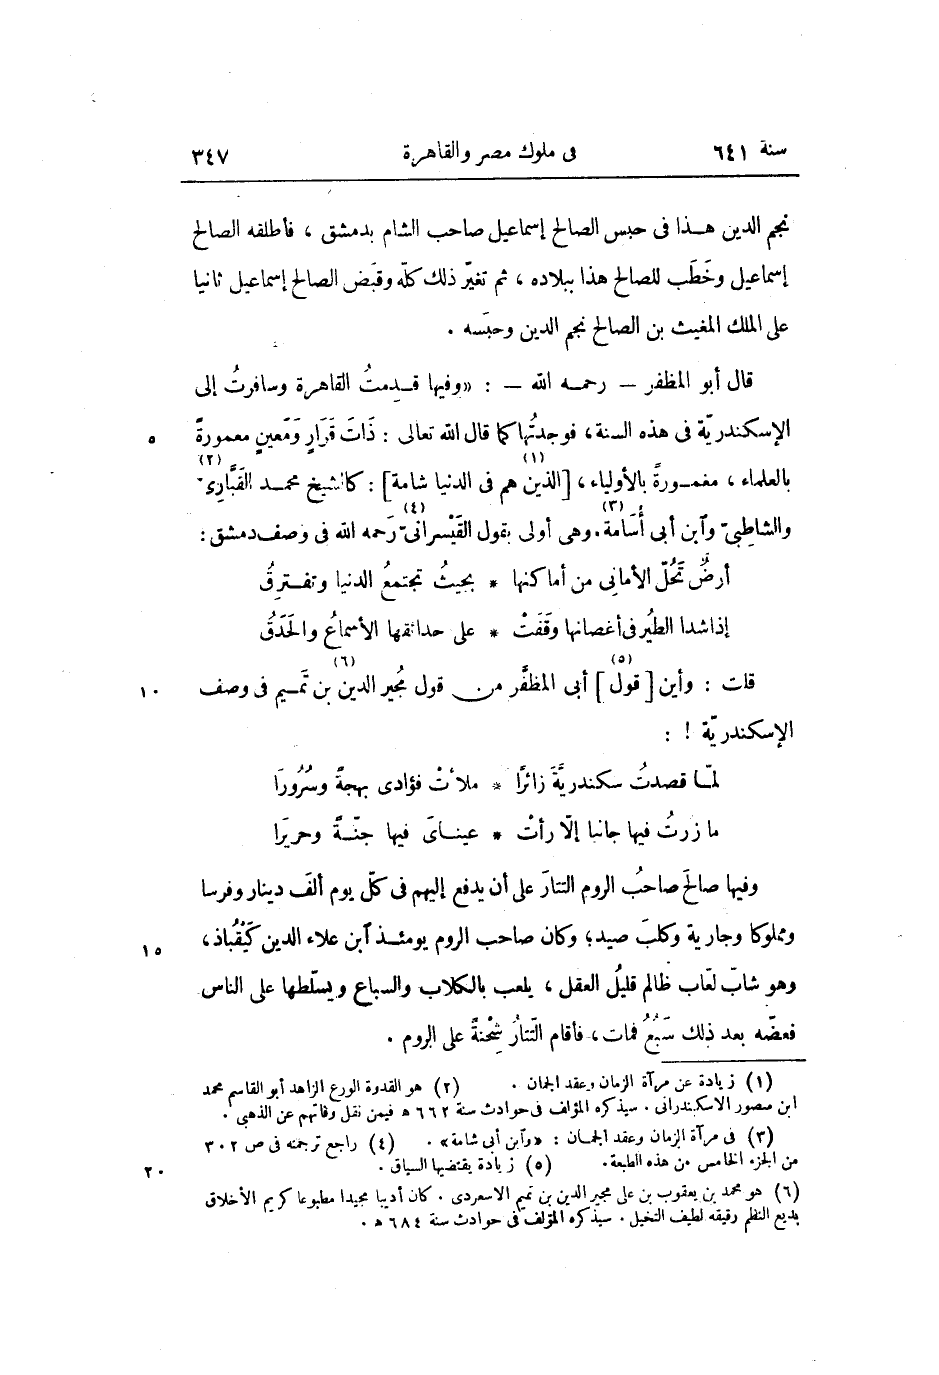 سنة ٦٤١ فى ملوك مصر والقاهرة ٣٤٧
نجم الدين هـذا فى حبس الصالح إسماعيل صاحب الشام بدمشق ، فأطلقه الصالح
إسماعيل وخَطَب للصالح هذا ببلاده ، ثم تغيّر ذلك كلّه وقبَض الصالح إسماعيل ثانيا
على الملك المغيث بن الصالح نجم الدين وحبَسه .
قال أبو المظفر — رحمـه الله — : «وفيها قـدِمتُ القاهرة وسافرتُ إلى
الإسكندريّة فى هذه السنة، فوجدتُها كما قال الله تعالى : ذَاتَ قَرَارٍ وَمَعِينٍ معمورةً ٥
بالعلماء ، مغمـورةً بالأولياء ، [الذين هم فى الدنيا شامة] (١) : كالشيخ محمـد القَبَّارِىّ (٢)
والشاطبىّ وآبن أبى أُسَامة (٣). وهى أولى بقول القَيْسرانىّ (٤) رَحمه الله فى وصف دمشق :
أرضٌ تَحُلّ الأمانى من أماكنها * بحيثُ تجتمعُ الدنيا وتفـترِقُ
إذا شدا الطيُر فى أغصانها وقَفَتْ * على حدائقها الأسماعُ والحَدَقُ
قلت : وأين [قول] (٥) أبى المظفَّر من قول مُجير الدين بن تَميم (٦) فى وصف ١٠
الإسكندريّة ! :
لمّـا قصدتُ سكندريَّةَ زائرًا * ملأتْ فؤادى بهجةً وسُرُورَا
ما زرتُ فيها جانبا إلّا رأتْ * عينـاىَ فيها جنّـةً وحريرَا
وفيها صالحَ صاحبُ الروم التتارَ على أن يدفع إليهم فى كلّ يوم ألفَ دينار وفرسا
ومملوكا وجارية وكلبَ صيد؛ وكان صاحب الروم يومئـذ آبن علاء الدين كَيْقُباذ، ١٥
وهو شابّ لعّاب ظالم قليلُ العقل ، يلعب بالكلاب والسباع ويسلّطها على الناس
فعضّه بعد ذلك سَبُعٌ فمات، فأقام التّتارُ شِحْنةً على الروم .
(١) زيادة عن مرآة الزمان وعقد الجمان . (٢) هو القدوة الورع الزاهد أبو القاسم محمد
ابن منصور الاسكندرانى . سيذكره المؤلف فى حوادث سنة ٦٦٢ ه فيمن نقل وفاتهم عن الذهبى .
(٣) فى مرآة الزمان وعقد الجمـان : «وآبن أبى شامة» . (٤) راجع ترجمته فى ص ٣٠٢
من الجزء الخامس من هذه الطبعة. (٥) زيادة يقتضيها السياق . ٢٠
(٦) هو محمد بن يعقوب بن على مجير الدين بن تميم الاسعردى . كان أديبا مجيدا مطبوعا كريم الأخلاق
بديع النظم رقيقه لطيف التخيل . سيذكره المؤلف فى حوادث سنة ٦٨٤ ه .